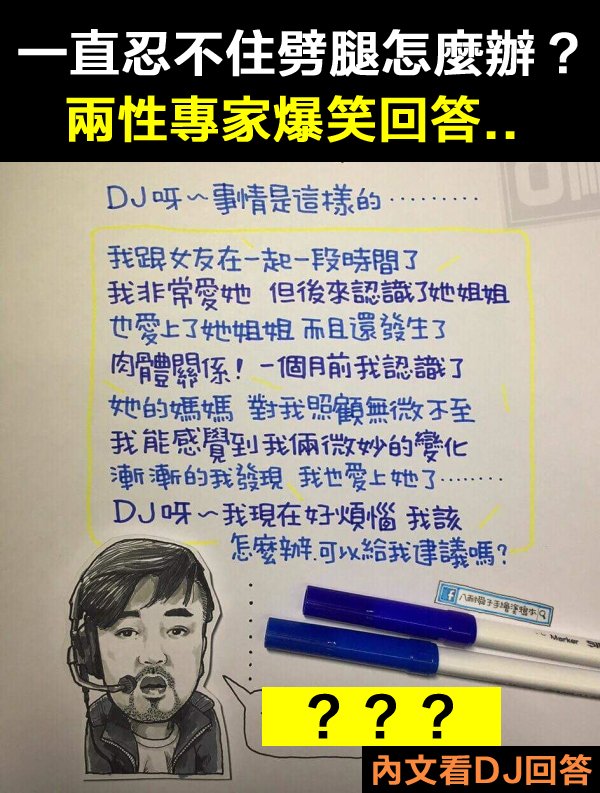 一直忍不住劈腿怎麼辦？
兩性專家爆笑回答..
DJ呀～事情是這樣的………
我跟女友在一起一段時間了
我非常愛她 但後來認識了她姐姐
也愛上了她姐姐 而且還發生了
肉體關係！一個月前我認識了
她的媽媽 對我照顧無微不至
我能感覺到我倆微妙的變化
漸漸的我發現 我也愛上她了………
DJ呀～我現在好煩惱 我該
怎麼辦.可以給我建議嗎？
Marker
？？？
內文看DJ回答